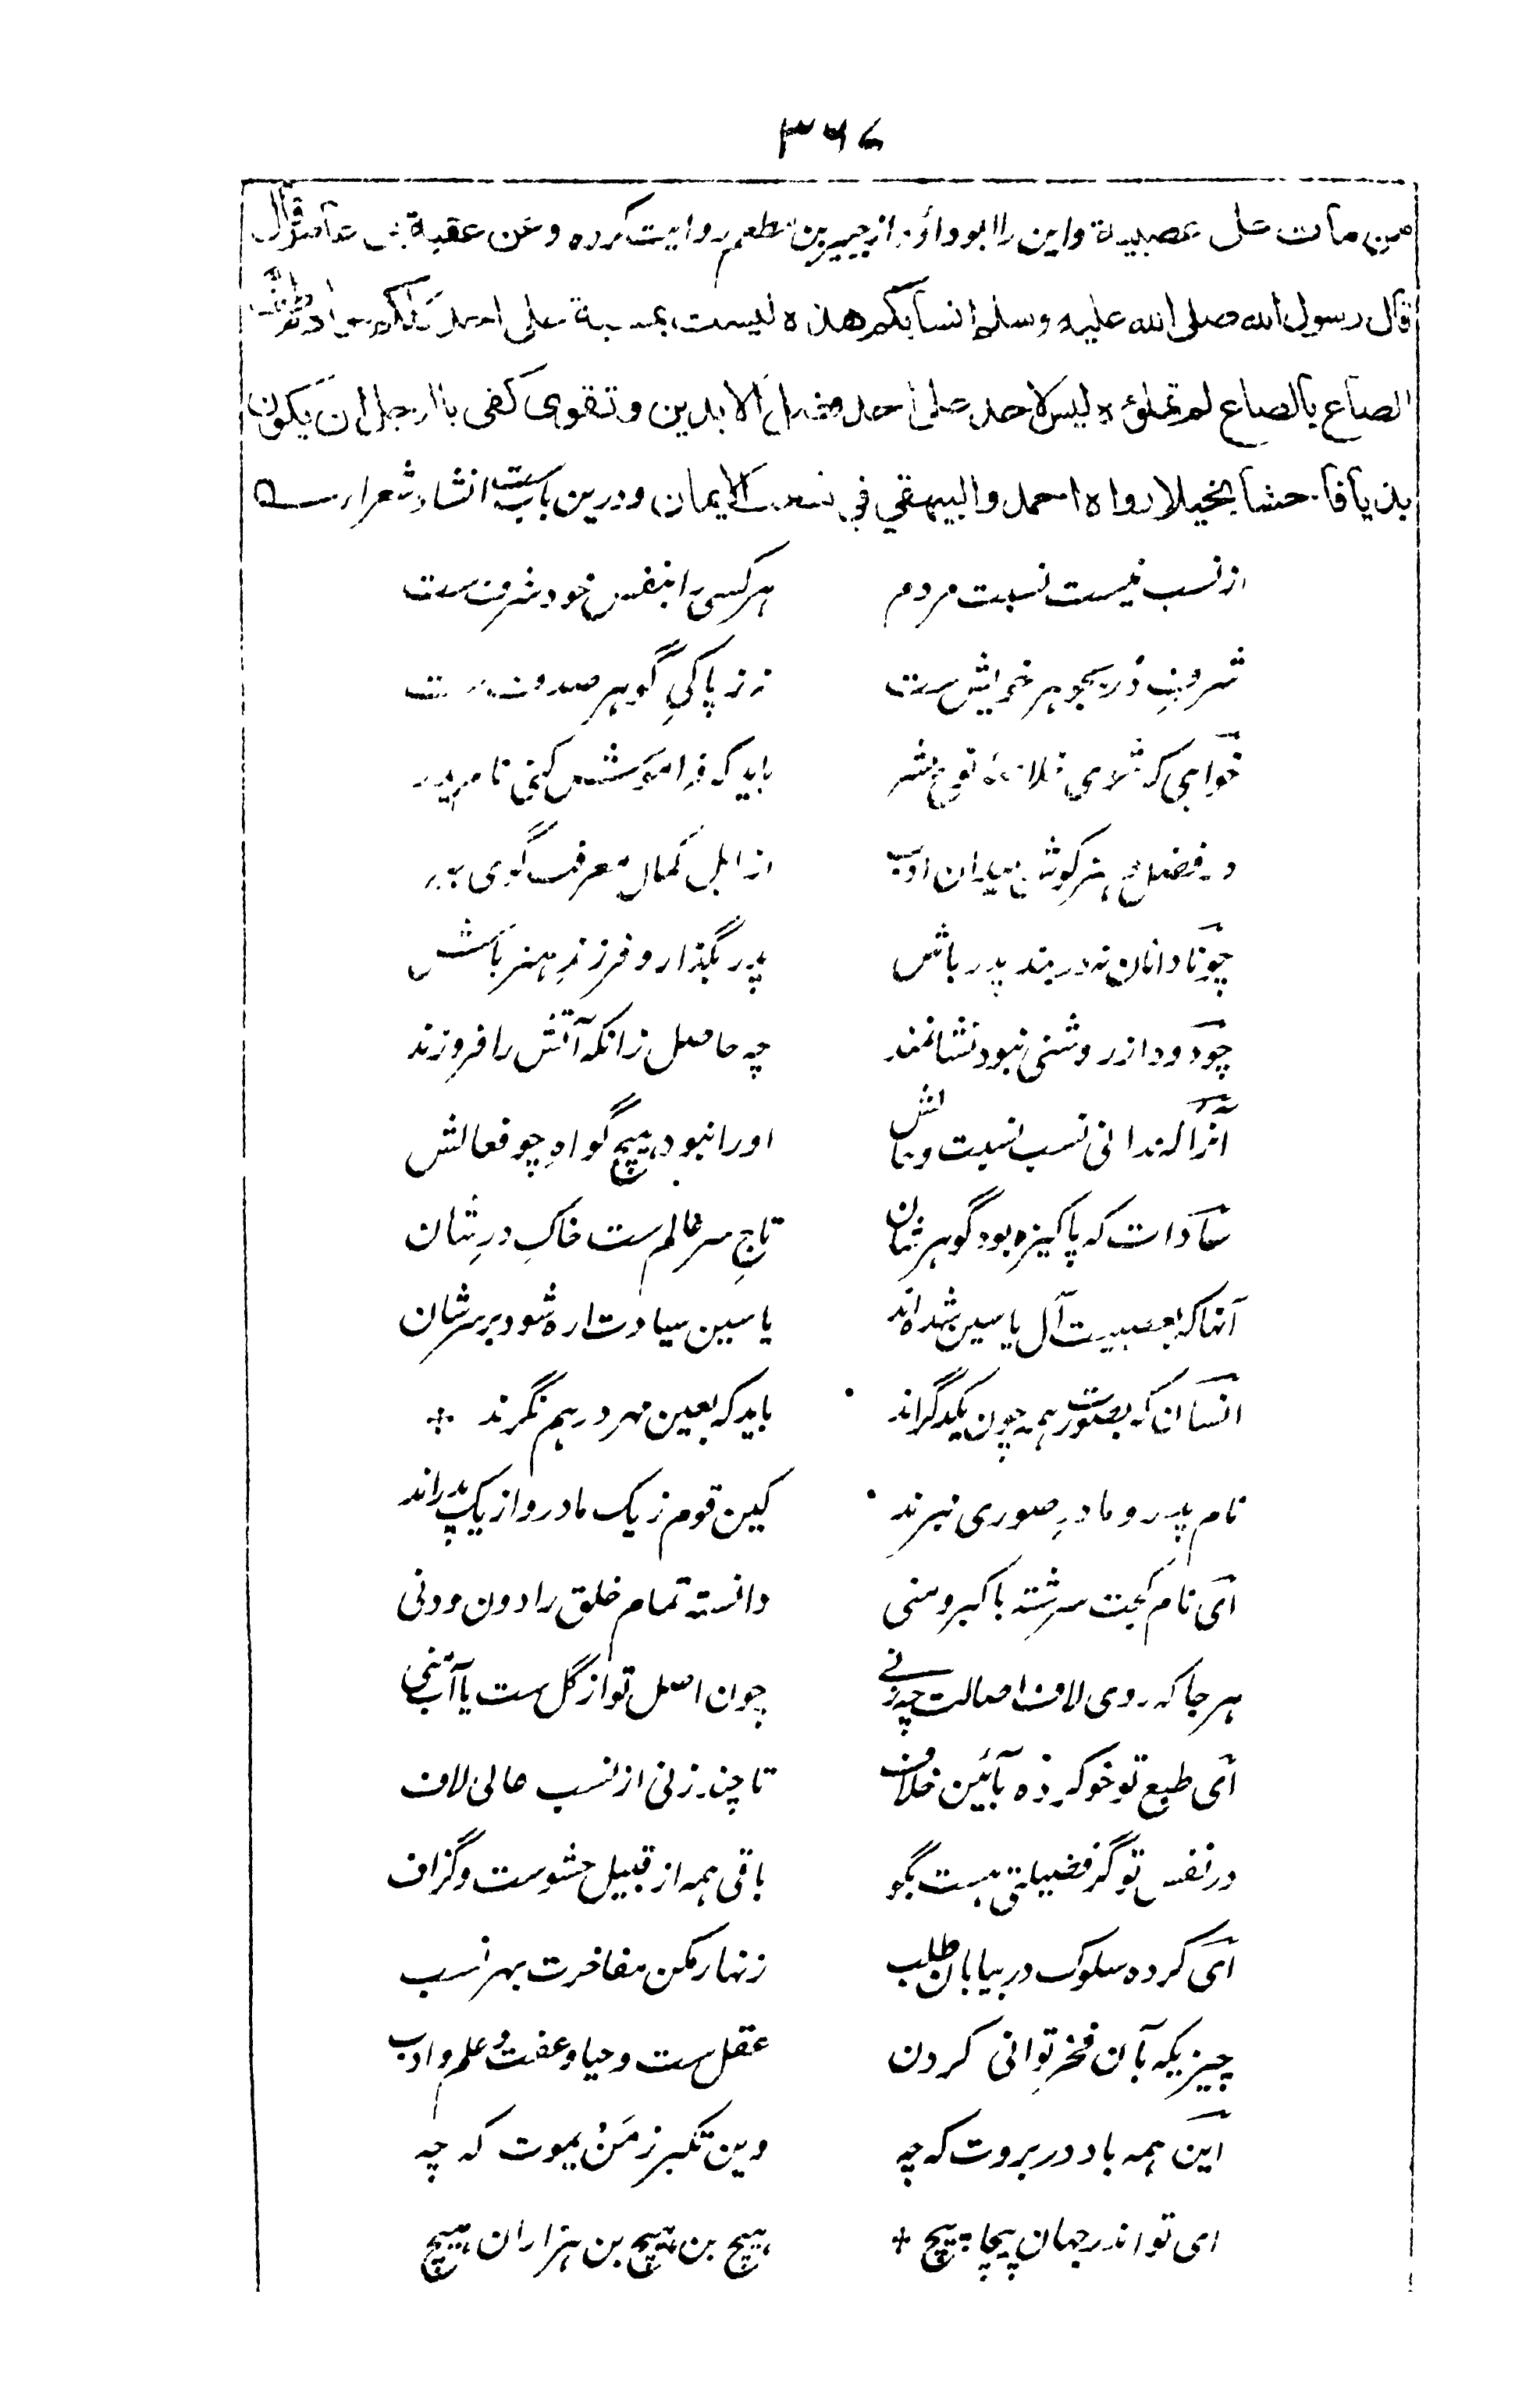 ۳۶۷
من مات علی عصبیة واین را ابوداؤد از جبیر بن مطعم روایت کرده وعن عقبة بن عامر قال
قال رسول الله صلی الله علیه وسلم انسابکم هذه لیست بمسبة علی احد کلکم بنو ادم طف
الصاع بالصاع لم تملؤه لیس لاحد علی احد فضل الا بدین وتقوی کفی بالرجل ان یکون
بذیا فاحشا بخیلا رواه احمد والبیهقي في شعب الایمان ودرین باب ست انشاد شعراء
از نسب نیست نسبت مردم هر کسی را بنفس خود شرف ست
شرف دُر بجوهر خویش ست نه ز پاکی گوهر صدف ست
خواهی که شوی بشر باید که فراموش کنی نام پدر
در فضل و هنر کوش میدان ادب از اهل کمال معرفت گوی ببر
چو نادانان نه در بند پدر باش پدر بگذار و فرزند هنر باش
چو دود از روشنی نبود نشانمند چه حاصل زانکه آتش را فروزند
آنرا که ندانی نسب نسبت وحالش او را نبود هیچ گواهِ چو فعالش
سادات که پاکیزه بود گوهر شان تاجِ سر عالم ست خاکِ درِ شان
آنها که بعصبیت آل یاسین شده اند یاسین سیادت اره شود بر سر شان
انسان که بصورت همه چون یکدگر اند باید که بعین مهر در هم نگرند
نام پدر و مادرِ صوری نبرند کین قوم ز یک مادر و از یک پدر اند
ای نام سرشته با کبر و منی دانسته تمام خلق را دون و دنی
هر جا که روی لاف اصالت چه زنی چون اصل تو از گل ست یا آب منی
ای طبع تو خو کرده بآئین خلاف تا چند زنی از نسب عالی لاف
در نفس تو گر فضیلتی هست بگو باقی همه از قبیل حشو ست و گزاف
ای کرده سلوک در بیابان طلب زنهار مکن مفاخرت بهر نسب
چیزیکه بآن فخر توانی کردن عقل ست و حیا و عفت و علم و ادب
این همه باد در بروت که چه وین تکبر ز مَنْ یموت که چه
ای تو اندر جهان پیچاپیچ هیچ بن هیچ بن هزاران هیچ